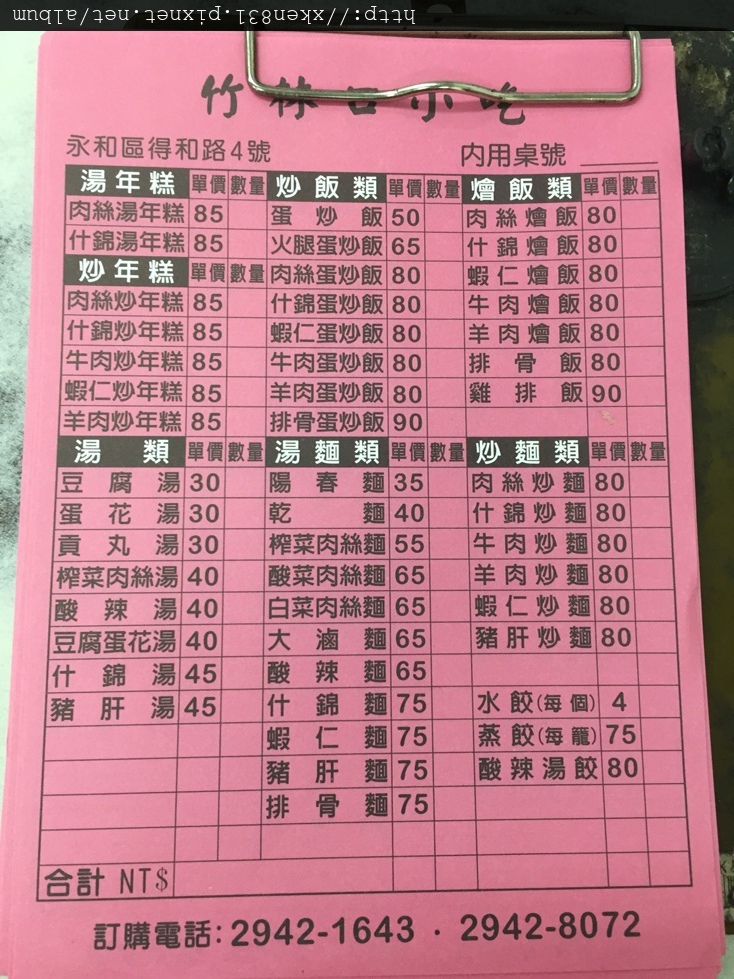 http://xken831.pixnet.net/album
竹林 小吃
永和區得和路4號 內用桌號
湯年糕 單價 數量 炒飯類 單價 數量 燴飯類 單價 數量
肉絲湯年糕 85 蛋炒飯 50 肉絲燴飯 80
什錦湯年糕 85 火腿蛋炒飯 65 什錦燴飯 80
炒年糕 單價 數量 肉絲蛋炒飯 80 蝦仁燴飯 80
肉絲炒年糕 85 什錦蛋炒飯 80 牛肉燴飯 80
什錦炒年糕 85 蝦仁蛋炒飯 80 羊肉燴飯 80
牛肉炒年糕 85 牛肉蛋炒飯 80 排骨飯 80
蝦仁炒年糕 85 羊肉蛋炒飯 80 雞排飯 90
羊肉炒年糕 85 排骨蛋炒飯 90
湯類 單價 數量 湯麵類 單價 數量 炒麵類 單價 數量
豆腐湯 30 陽春麵 35 肉絲炒麵 80
蛋花湯 30 乾麵 40 什錦炒麵 80
貢丸湯 30 榨菜肉絲麵 55 牛肉炒麵 80
榨菜肉絲湯 40 酸菜肉絲麵 65 羊肉炒麵 80
酸辣湯 40 白菜肉絲麵 65 蝦仁炒麵 80
豆腐蛋花湯 40 大滷麵 65 豬肝炒麵 80
什錦湯 45 酸辣麵 65
豬肝湯 45 什錦麵 75 水餃(每個) 4
蝦仁麵 75 蒸餃(每籠) 75
豬肝麵 75 酸辣湯餃 80
排骨麵 75
合計 NT$
訂購電話:2942-1643 · 2942-8072